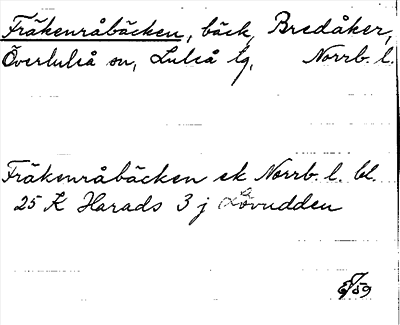 Fräkenråbäcken, bäck, Bredåker,
Överluleå sn, Luleå tg, Norrb. l.
Fräkenråbäcken ek Norrb. l. bl.
25 K Harads 3 j Lövudden
59